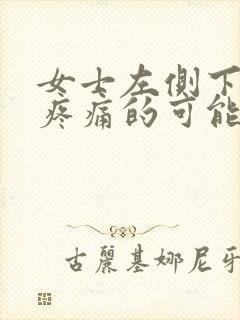 女士左側下
疼痛的可能
古麗基娜尼牙